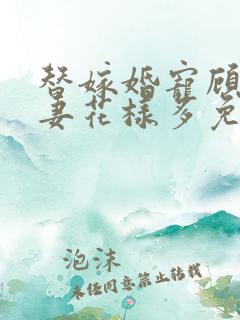 替嫁婚寵顾
妻花樣多免
泡沫
未经同意禁止转载